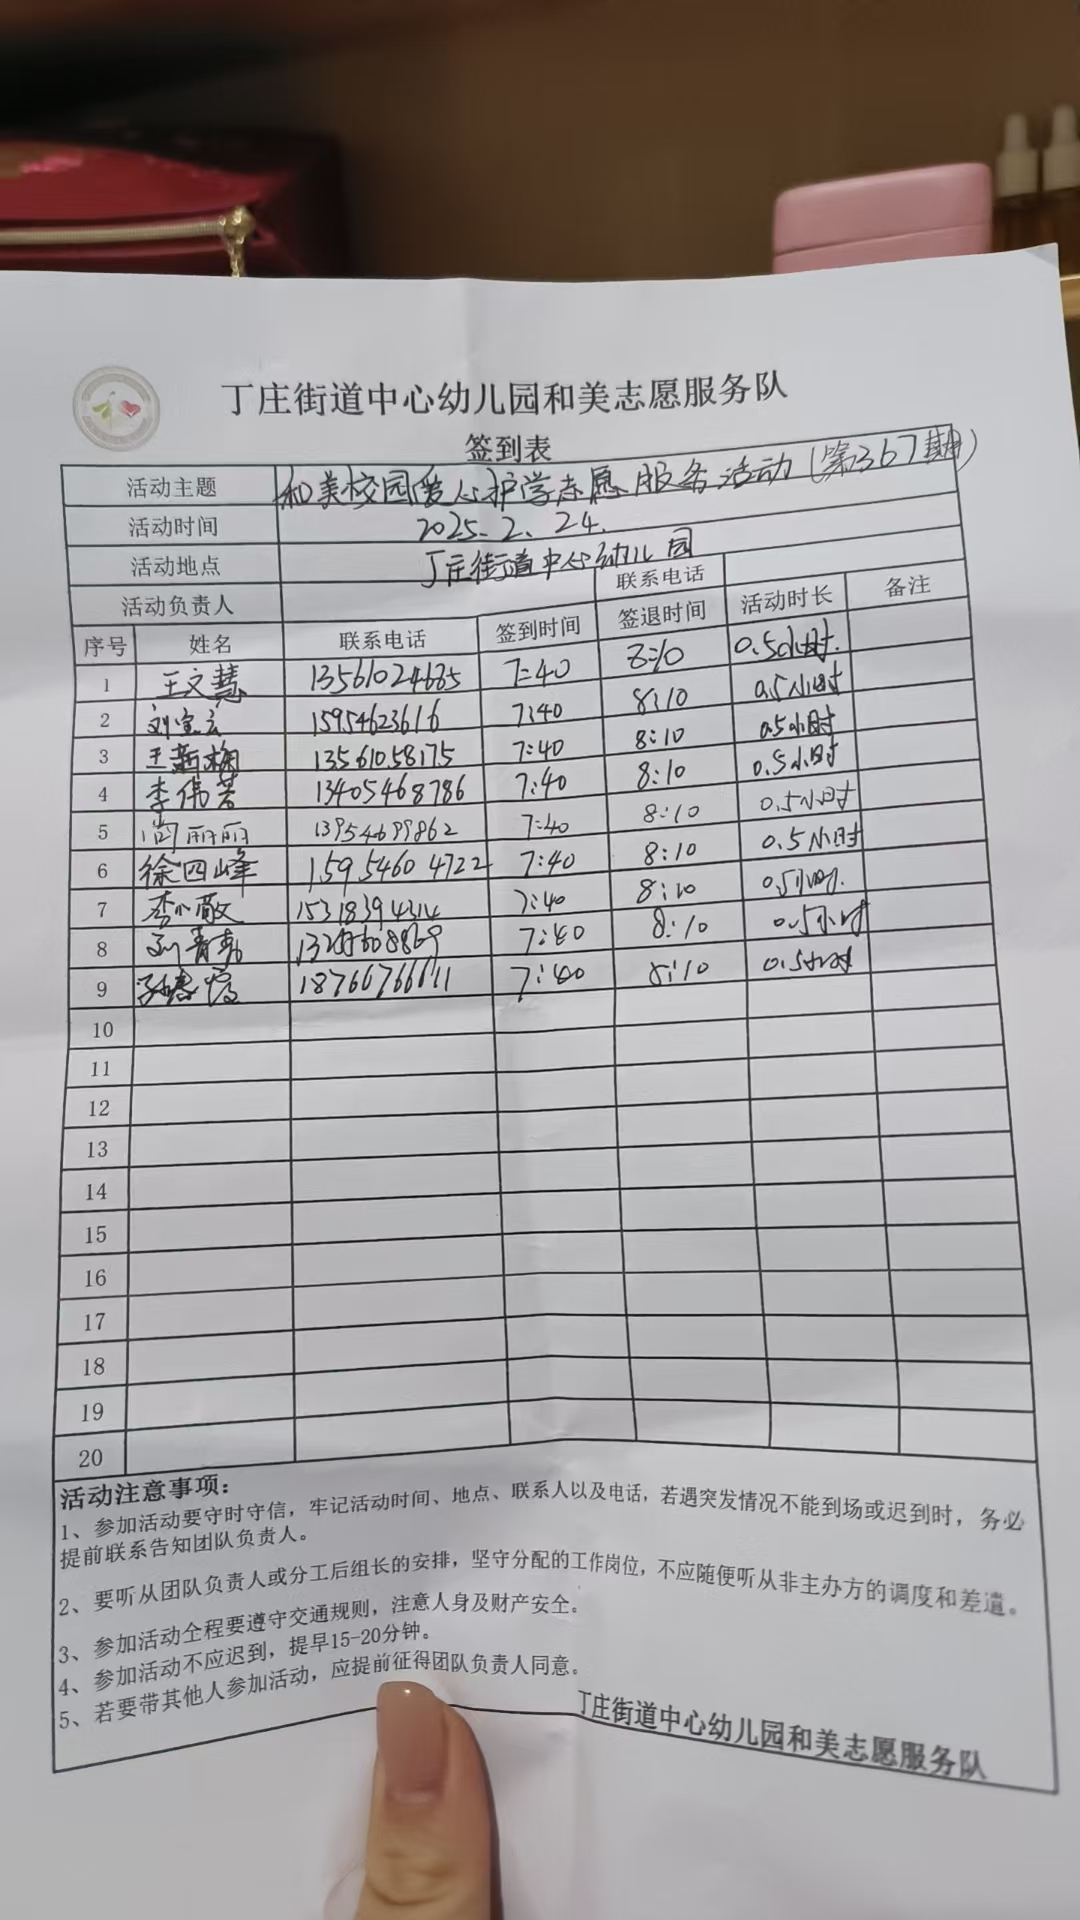 丁庄街道中心幼儿园和美志愿服务队
签到表
活动主题 和美校园爱心护学志愿服务活动(第367期)
活动时间 2025.2.24.
活动地点 丁庄街道中心幼儿园
活动负责人 联系电话
序号 姓名 联系电话 签到时间 签退时间 活动时长 备注
1 王文慧 13561024685 7:40 8:10 0.5小时.
2 刘宝云 15954623616 7:40 8:10 0.5小时
3 王新梅 13561058175 7:40 8:10 0.5小时
4 李伟芳 13405468786 7:40 8:10 0.5小时
5 尚丽丽 13954699862 7:40 8:10 0.5小时
6 徐四峰 15954604722 7:40 8:10 0.5小时
7 李小敏 15318394314 7:40 8:10 0.5小时.
8 7:40 8:10 0.5小时
9 18766766611 7:40 8:10 0.5小时
10
11
12
13
14
15
16
17
18
19
20
活动注意事项:
1、参加活动要守时守信,牢记活动时间、地点、联系人以及电话,若遇突发情况不能到场或迟到时,务必
提前联系告知团队负责人。
2、要听从团队负责人或分工后组长的安排,坚守分配的工作岗位,不应随便听从非主办方的调度和差遣。
3、参加活动全程要遵守交通规则,注意人身及财产安全。
4、参加活动不应迟到,提早15-20分钟。
5、若要带其他人参加活动,应提前征得团队负责人同意。
丁庄街道中心幼儿园和美志愿服务队